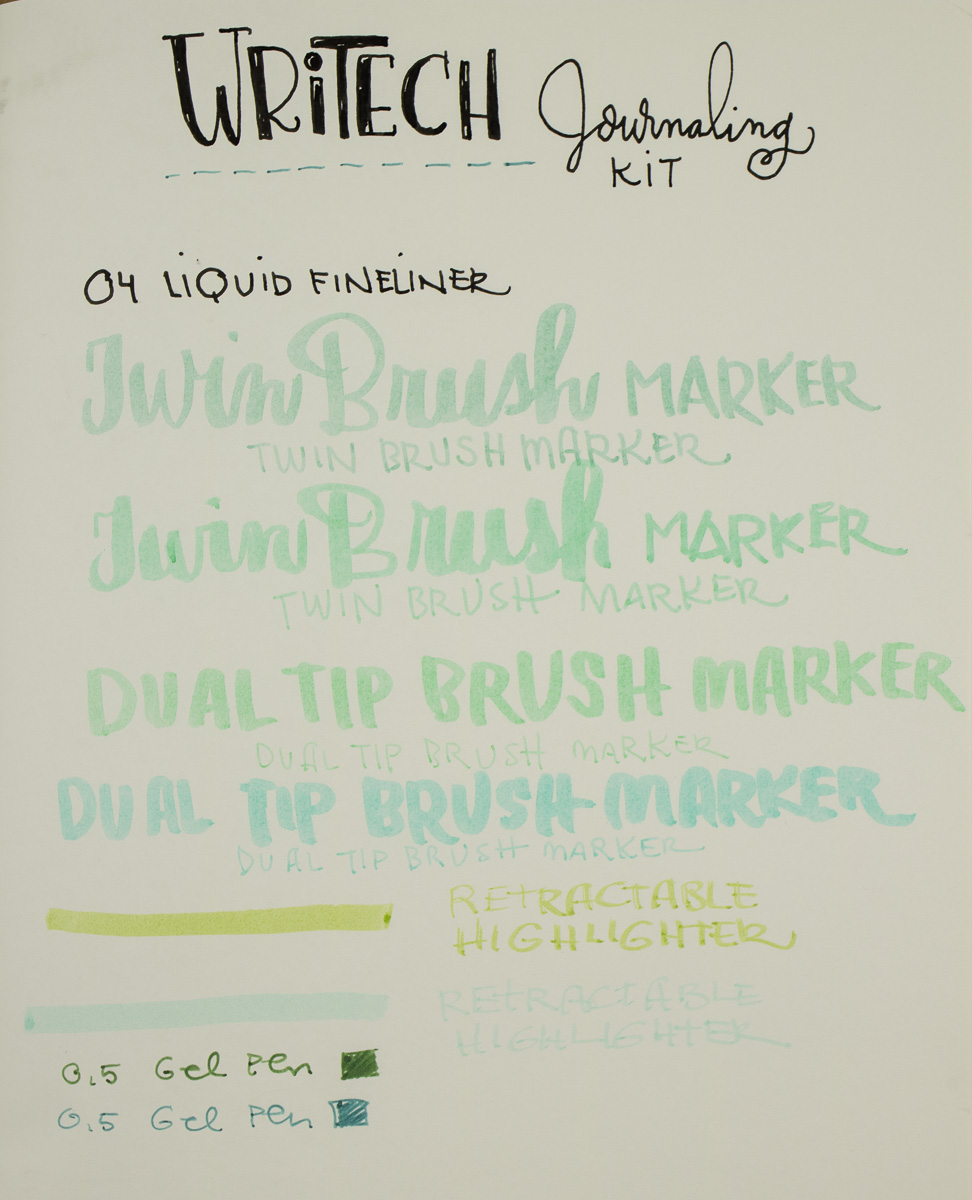 WRiTECH Journaling
KiT
04 LiQUiD FiNELiNER
Twin Brush MARKER
TWIN BRUSH MARKER
Twin Brush MARKER
TWIN BRUSH MARKER
DUAL TIP BRUSH MARKER
DUAL TIP BRUSH MARKER
DUAL TIP BRUSH MARKER
DUAL TIP BRUSH MARKER
RETRACTABLE
HIGHLIGHTER
RETRACTABLE
HIGHLIGHTER
0.5 Gel Pen
0.5 Gel Pen